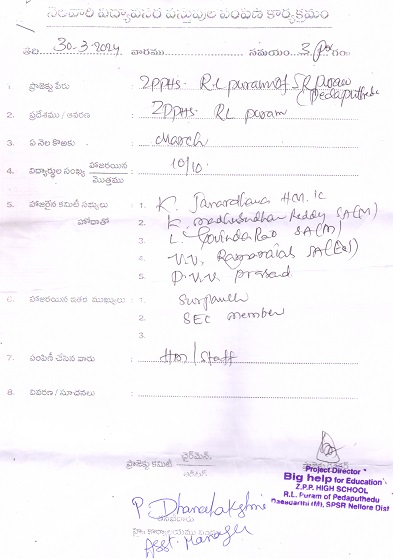 నెలవారి విద్యావసర వస్తువుల పంపిణి కార్యక్రమం
తేది 30-3-2024 వారము సమయం 3 Pm గం.
1. ప్రాజెక్టు పేరు : ZPPHS- R.L puram of SR Puram (Pedaputhedu
2. ప్రదేశము / ఆవరణ : ZPPHS- RL puram
3. ఏ నెల కొఱకు : March
4. విద్యార్థుల సంఖ్య హాజరయిన / మొత్తము : 10/10
5. హాజరైన కమిటీ సభ్యులు హోదాతో : 1. K. Janardhana HM. Ic
2. K. Madhusudhan Reddy SA(M)
3. L. Govinda Rao SA(M)
4. V.V. Ramanaiah SA(Eng)
5. D.V.V. prasad
6. హాజరయిన ఇతర ముఖ్యులు : 1. Surpanch
2. SEC member
3.
7. పంపిణీ చేసిన వారు : HM/Staff
8. వివరణ / సూచనలు :
ప్రాజెక్టు కమిటీ ఛైర్మెన్
Project Director
Big help for Education
Z.P.P. HIGH SCHOOL
R.L. Puram of Pedaputhedu
Dagadarthi (M), SPSR Nellore Dist
P. Dhanalakshmi
Asst. Manager